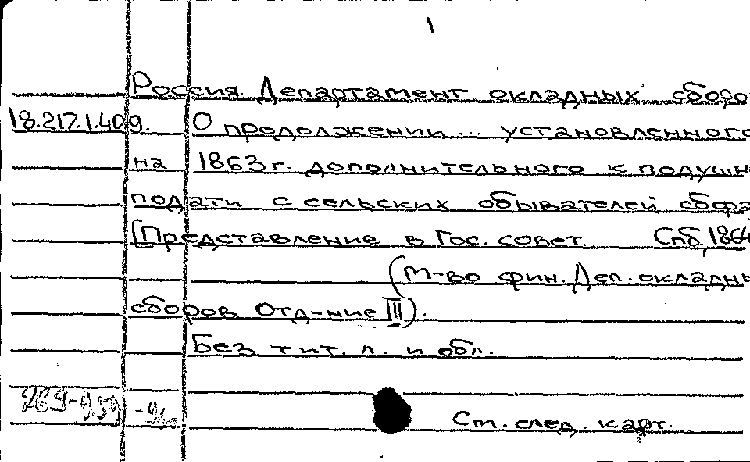 1
Россия. Департамент окладных сборо
18.217.1.409. О продолжении... установленного
на 1863 г. дополнительного к подушн
подати с сельских обывателей сбора
[Представление в Гос. совет. Спб, 1864
(М-во фин. Деп. окладны
сборов Отд-ние III).
Без тит. л. и обл.
См. след. карт.